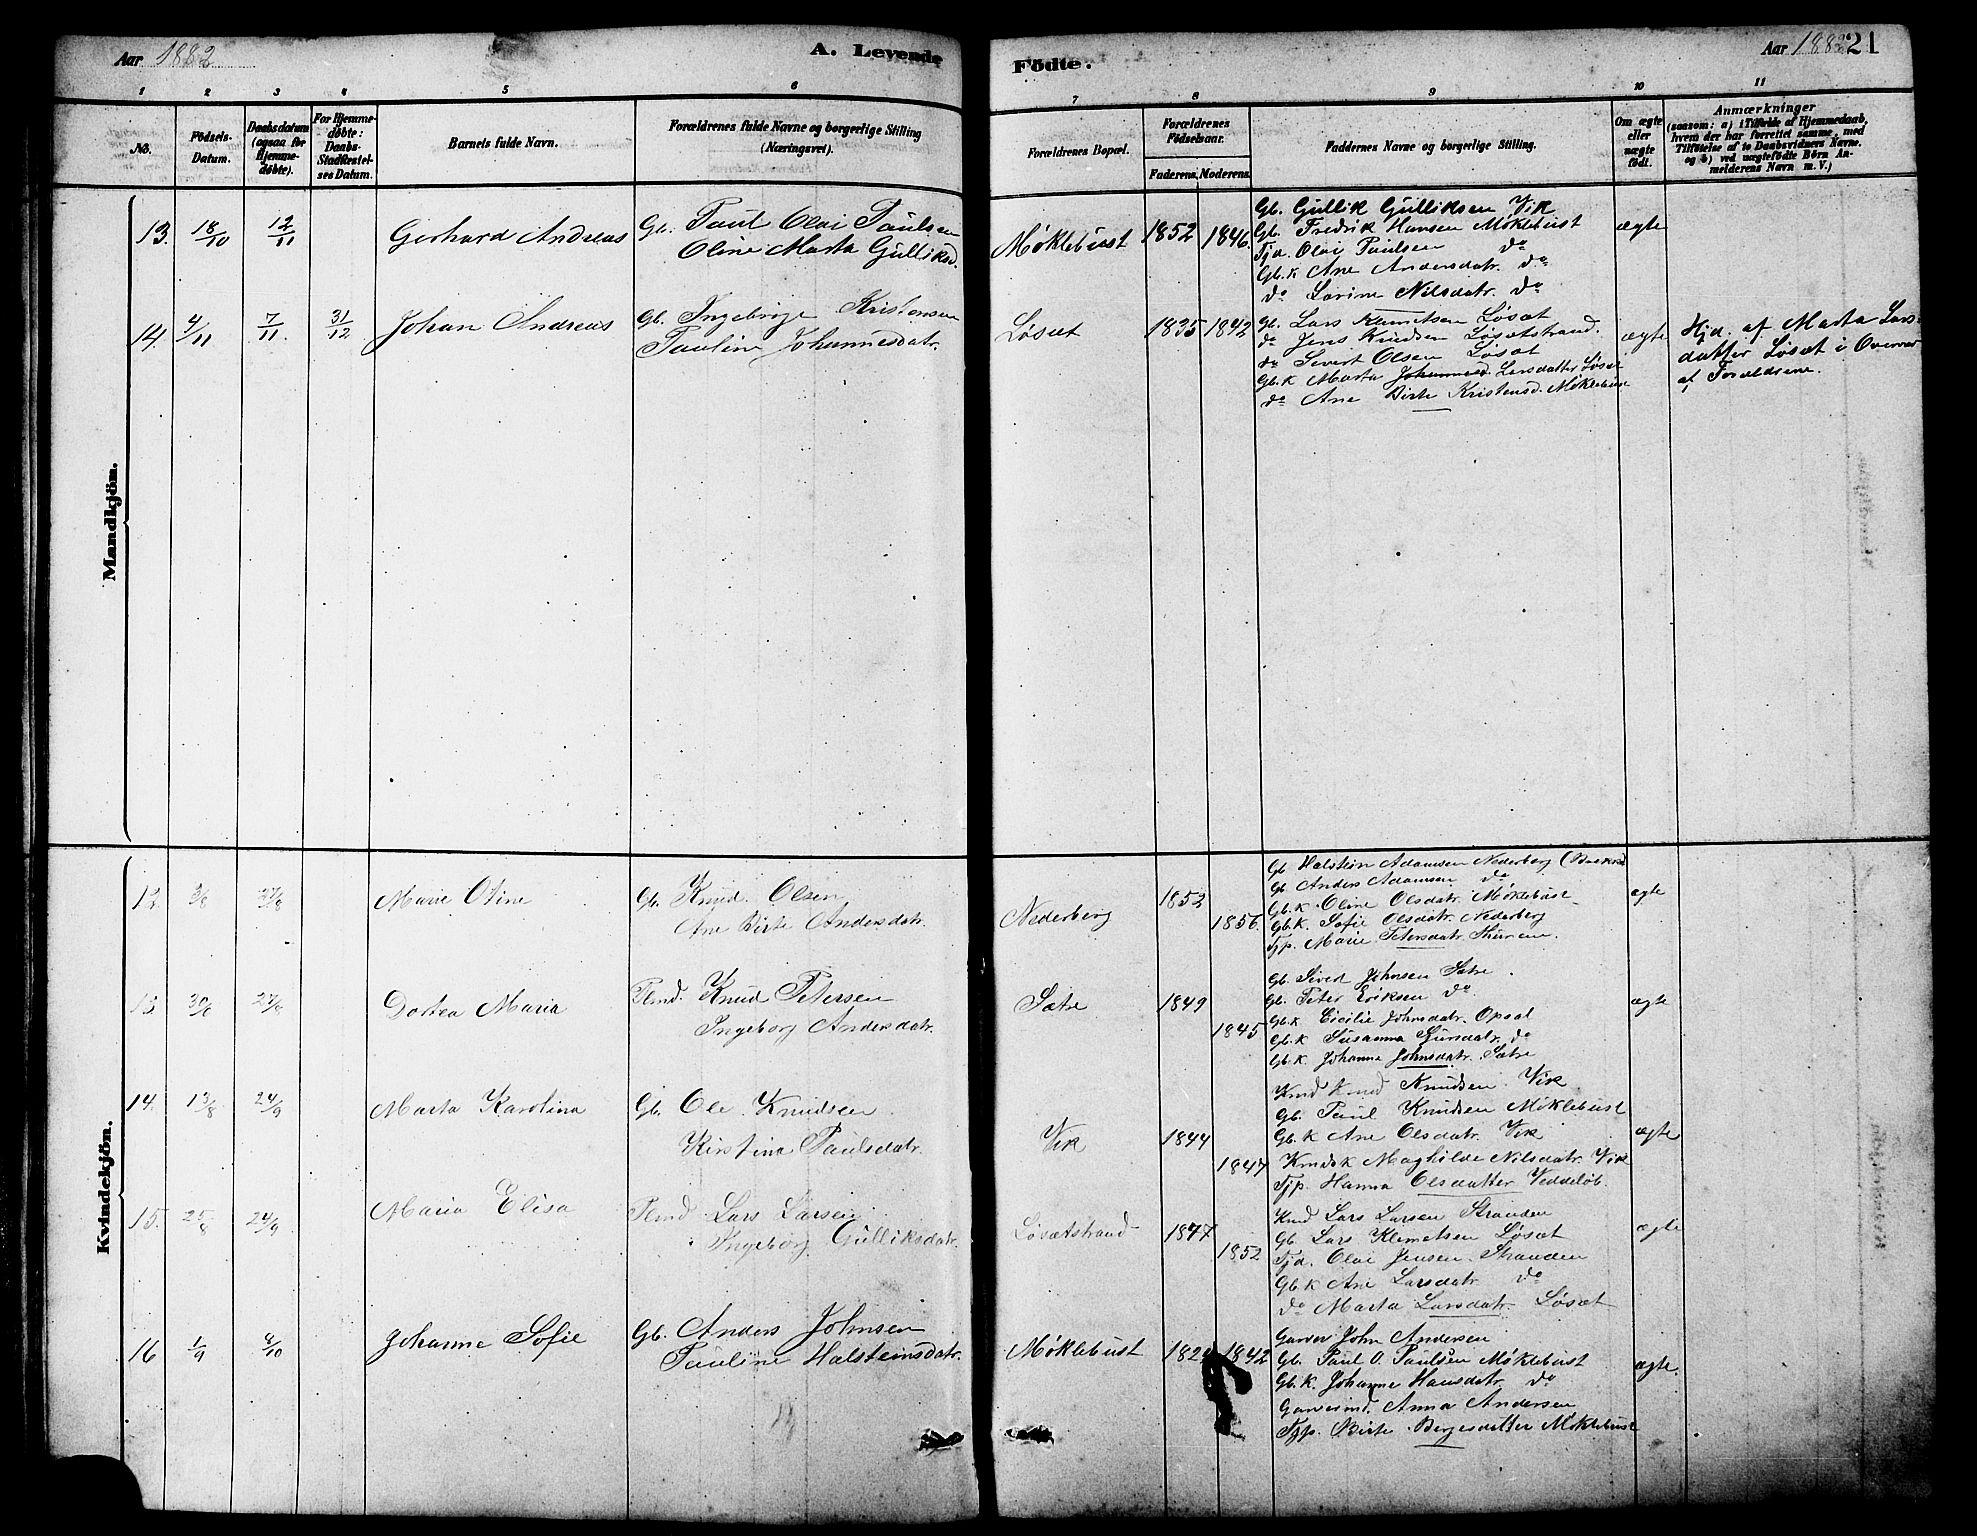 Aar 1882
A. Levende
Födte.
Aar 1882 21
1 2 3 4 5 6 7 8 9 10 11
No.
Födsels-Datum.
Daabsdatum (ogsaa for Hjemme-döbte).
For Hjemme-döbte: Daabs-Stadfæstel-ses Datum.
Barnets fulde Navn.
Forældrenes fulde Navne og borgerlige Stilling (Næringsvei).
Forældrenes Bopæl.
Forældrenes Födselsaar.
Faderens. Moderens.
Faddernes Navne og borgerlige Stilling.
Om ægte eller uægte födt.
Anmærkninger
(saasom: a) i Tilfælde af Hjemmedaab, hvem der har forrettet samme, med Tilföielse af to Daabsvidners Navne. og b) ved uægtefödte Börn An-melderens Navn m. V.)
Mandkjön.
13. 18/10 12/11 Gerhard Andreas
Gb. Paul Olai Paulsen
Oline Marta Gulliksd.
Møklebust 1852 1846.
Gb. Gullik Gulliksen Vik
Gb. Fredrik Hansen Møklebust
Tjd. Olai Paulsen do
Gb.k Ane Andersdatr. do
do Larine Nilsdatr. do
ægte
14. 4/11 7/11. 31/12 Johan Andreas
Gb. Ingebrigt Kristensen
Pauline Johannesdatr.
Løsæt 1835 1842
Gb. Lars Klemetsen Løsæt
do Jens Knudsen Løsætstrand.
do Sivert Olsen Løsæt
Gb.k Marta Larsdatter Løsæt
do Ane Birte Kristensd. Møklebust
ægte
Hjd. af Marta Lars-
datter Løsæt i Overvær
af Forældrene.
Kvindekjön.
12. 3/8 27/8 Marie Oline
Gb. Knud Olsen
Ane Birte Andersdatr.
Nederberg 1852
1856.
Gb Halstein Adamsen Nederberg
Gb Anders Adamsen do
Gb.k Oline Olsdatr. Møklebust
Gb.k. Sofie Olsdatr. Nederberg
Tjp. Marie Petersdatr.
ægte
13 30/6 27/8 Dortea Maria
Knud Petersen
Ingeborg Andersdatr.
Sætre 1849
1845
Gb. Sivert Johnsen Sætre.
Gb. Peter Eriksen do
Gb.k Cicilie Johnsdatr. Opsal
Gb.k Susanna do
Gb.k. Johanne Johnsdatr. Sætre
ægte
14. 13/8 24/9 Marta Karolina
Gb. Ole Knudsen
Kirstina Paulsdatr.
Vik 1844
1847
Kmd Knud Knudsen Vik
Gb. Paul Knudsen Møklebust
Gb.k Ane Olsdatr. Vik
Kmdsk Maghilde Nilsdatr. Vik
Tjp. Hanna Olsdatter Veddeløb.
ægte
15. 25/8 24/9 Maria Elisa
Lars Larsen
Ingeborg Gulliksdatr.
Løsætstrand 1847
1852
Kmd Lars Larsen Stranden
Gb. Lars Klemetsen Løsæt
Tjd. Olai Jensen Stranden
Gb.k Ane Larsdatr. do
do Marta Larsdatr. Løsæt
ægte
16 1/9 8/10 Johanne Sofie
Gb. Anders Johnsen
Pauline Halsteinsdatr.
Møklebust 1842
Garver John Andersen
Gb. Paul O. Paulsen Møklebust
Gb.k. Johanne Hansdatr. do
Anna Andersen
Tjp. Birte Bergesdatter Møklebust
ægte.